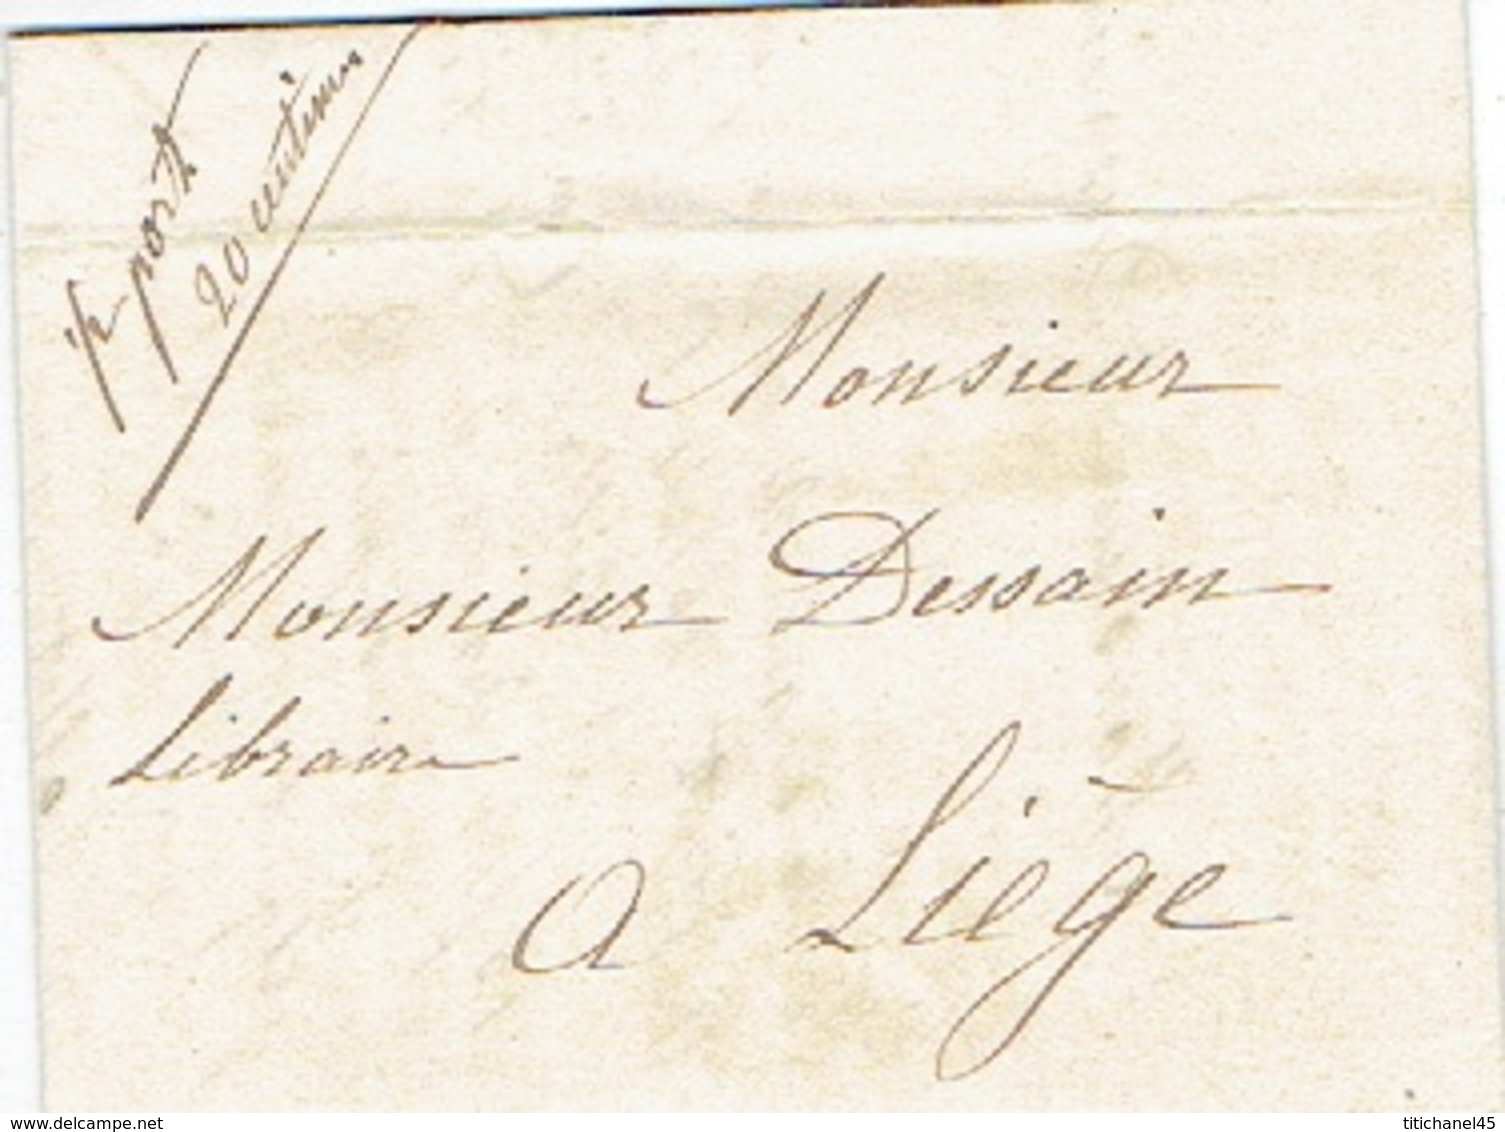 port
20 centimes
Monsieur
Monsieur Dessain
Libraire
a Liège
www.delcampe.net
titichanel45